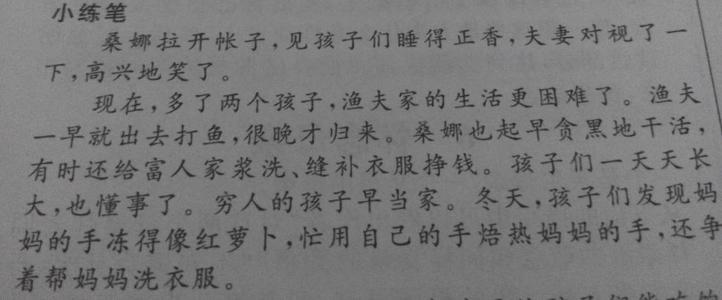 小练笔
桑娜拉开帐子,见孩子们睡得正香,夫妻对视了一
下,高兴地笑了。
现在,多了两个孩子,渔夫家的生活更困难了。渔夫
一早就出去打鱼,很晚才归来。桑娜也起早贪黑地干活,
有时还给富人家浆洗、缝补衣服挣钱。孩子们一天天长
大,也懂事了。穷人的孩子早当家。冬天,孩子们发现妈
妈的手冻得像红萝卜,忙用自己的手焐热妈妈的手,还争
着帮妈妈洗衣服。